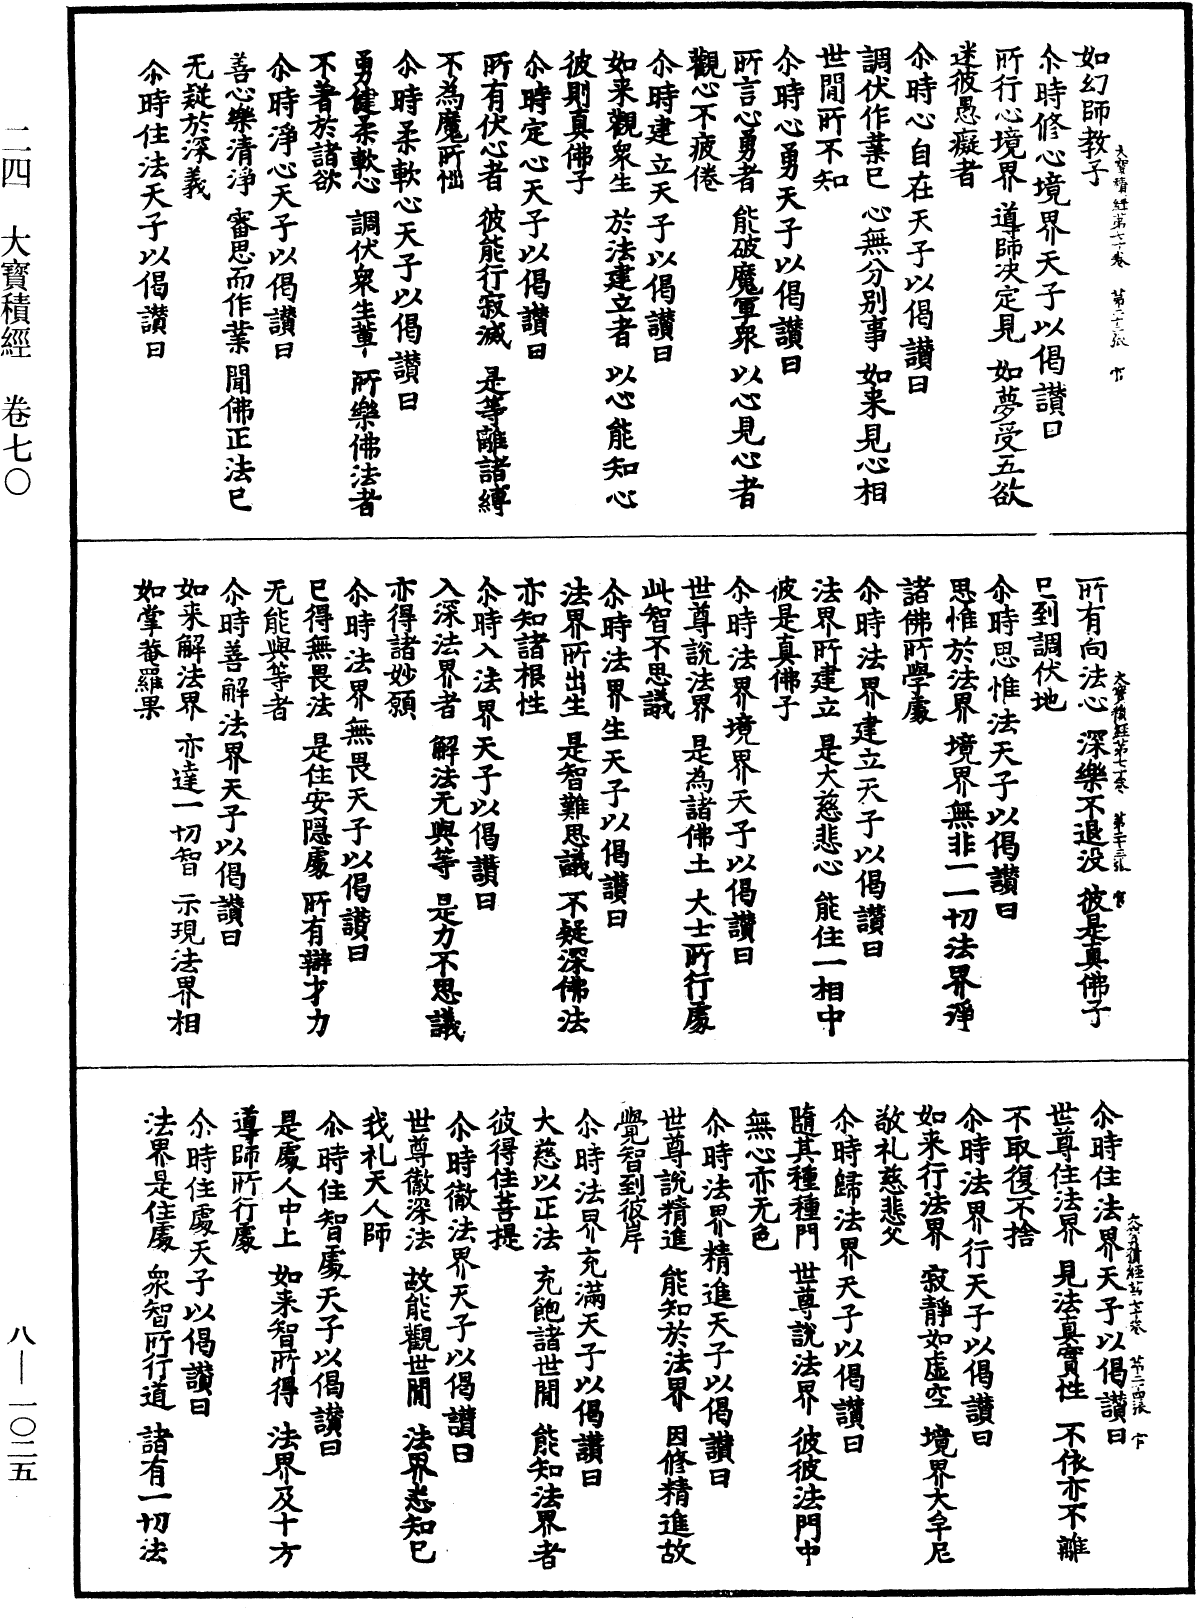 如幻師教子
尒時修心境界天子以偈讃曰
所行心境界 導師決定見 如夢受五欲
迷彼愚癡者
尒時心自在天子以偈讃曰
調伏作業已 心無分别事 如来見心相
世間所不知
尒時心勇天子以偈讃曰
所言心勇者 能破魔軍衆 以心見心者
觀心不疲倦
尒時建立天子以偈讃曰
如来觀衆生 於法建立者 以心能知心
彼則真佛子
尒時定心天子以偈讃曰
所有伏心者 彼能行寂滅 是等離諸縛
不為魔所怞
尒時柔軟心天子以偈讃曰
勇健柔軟心 調伏衆生輩 所樂佛法者
不著於諸欲
尒時淨心天子以偈讃曰
善心樂清淨 審思而作業 聞佛正法已
无疑於深義
尒時住法天子以偈讃曰
大寶積經第七十卷 第二十二張 官
所有向法心 深樂不退没 彼是真佛子
已到調伏地
尒時思惟法天子以偈讃曰
思惟於法界 境界無非一 一切法界淨
諸佛所學處
尒時法界建立天子以偈讃曰
法界所建立 是大慈悲心 能住一相中
彼是真佛子
尒時法界境界天子以偈讃曰
世尊說法界 是為諸佛土 大士所行處
此智不思議
尒時法界生天子以偈讃曰
法界所出生 是智難思議 不疑深佛法
亦知諸根性
尒時入法界天子以偈讃曰
入深法界者 解法无與等 是力不思議
亦得諸妙願
尒時法界無畏天子以偈讃曰
已得無畏法 是住安隱處 所有辯才力
无能與等者
尒時善解法界天子以偈讃曰
如来解法界 亦達一切智 示現法界相
如掌菴羅果
大寶積經第七十卷 第二十三張 官
尒時住法界天子以偈讃曰
世尊住法界 見法真實性 不依亦不離
不取復不捨
尒時法界行天子以偈讃曰
如来行法界 寂靜如虛空 境界大牟尼
敬礼慈悲父
尒時歸法界天子以偈讃曰
隨其種種門 世尊說法界 彼彼法門中
無心亦无色
尒時法界精進天子以偈讃曰
世尊說精進 能知於法界 因修精進故
覺智到彼岸
尒時法界充滿天子以偈讃曰
大慈以正法 充飽諸世間 能知法界者
彼得住菩提
尒時徹法界天子以偈讃曰
世尊徹深法 故能觀世間 法界悉知已
我礼天人師
尒時住智處天子以偈讃曰
是處人中上 如来智所得 法界及十方
導師所行處
尒時住處天子以偈讃曰
法界是住處 衆智所行道 諸有一切法
大寶積經第七十卷 第二十四張 官
二四 大寶積經 卷七〇
八—一〇二五